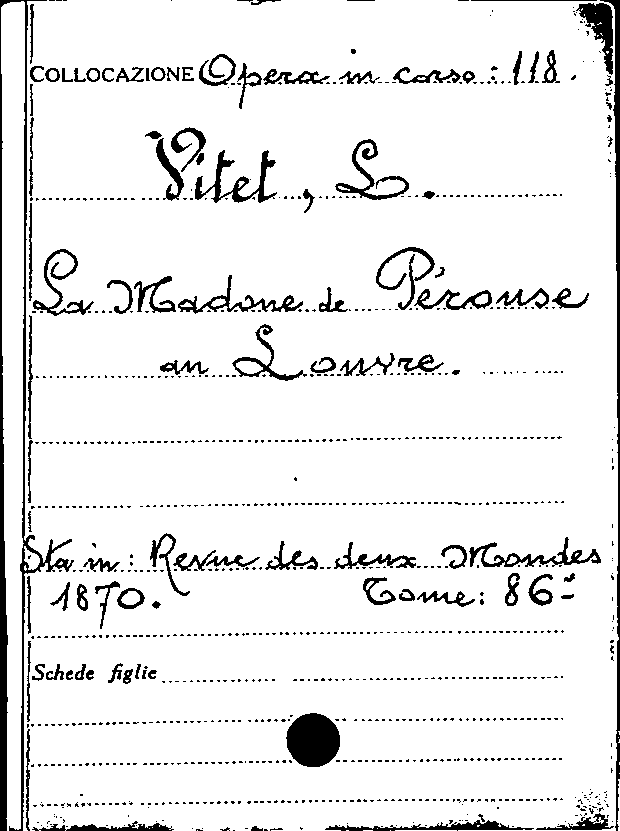 COLLOCAZIONE Opera in corso: 118.
Vitet, L.
La Madone de Pérouse
au Louvre.
Sta in: Revue des deux Mondes
1870. Tome: 86º
Schede figlie